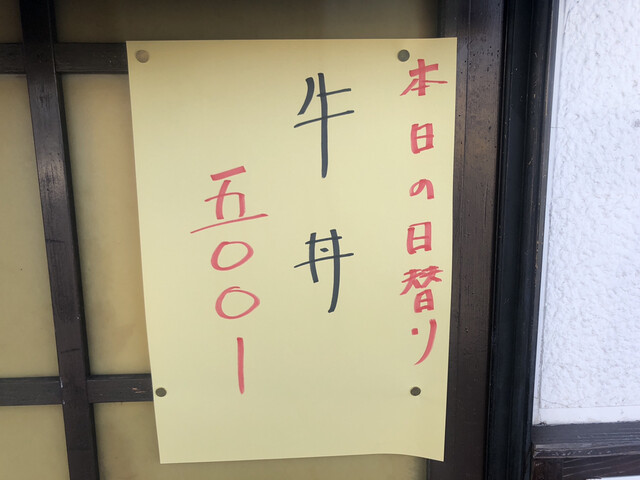 本日の日替り
牛丼
五〇〇ー